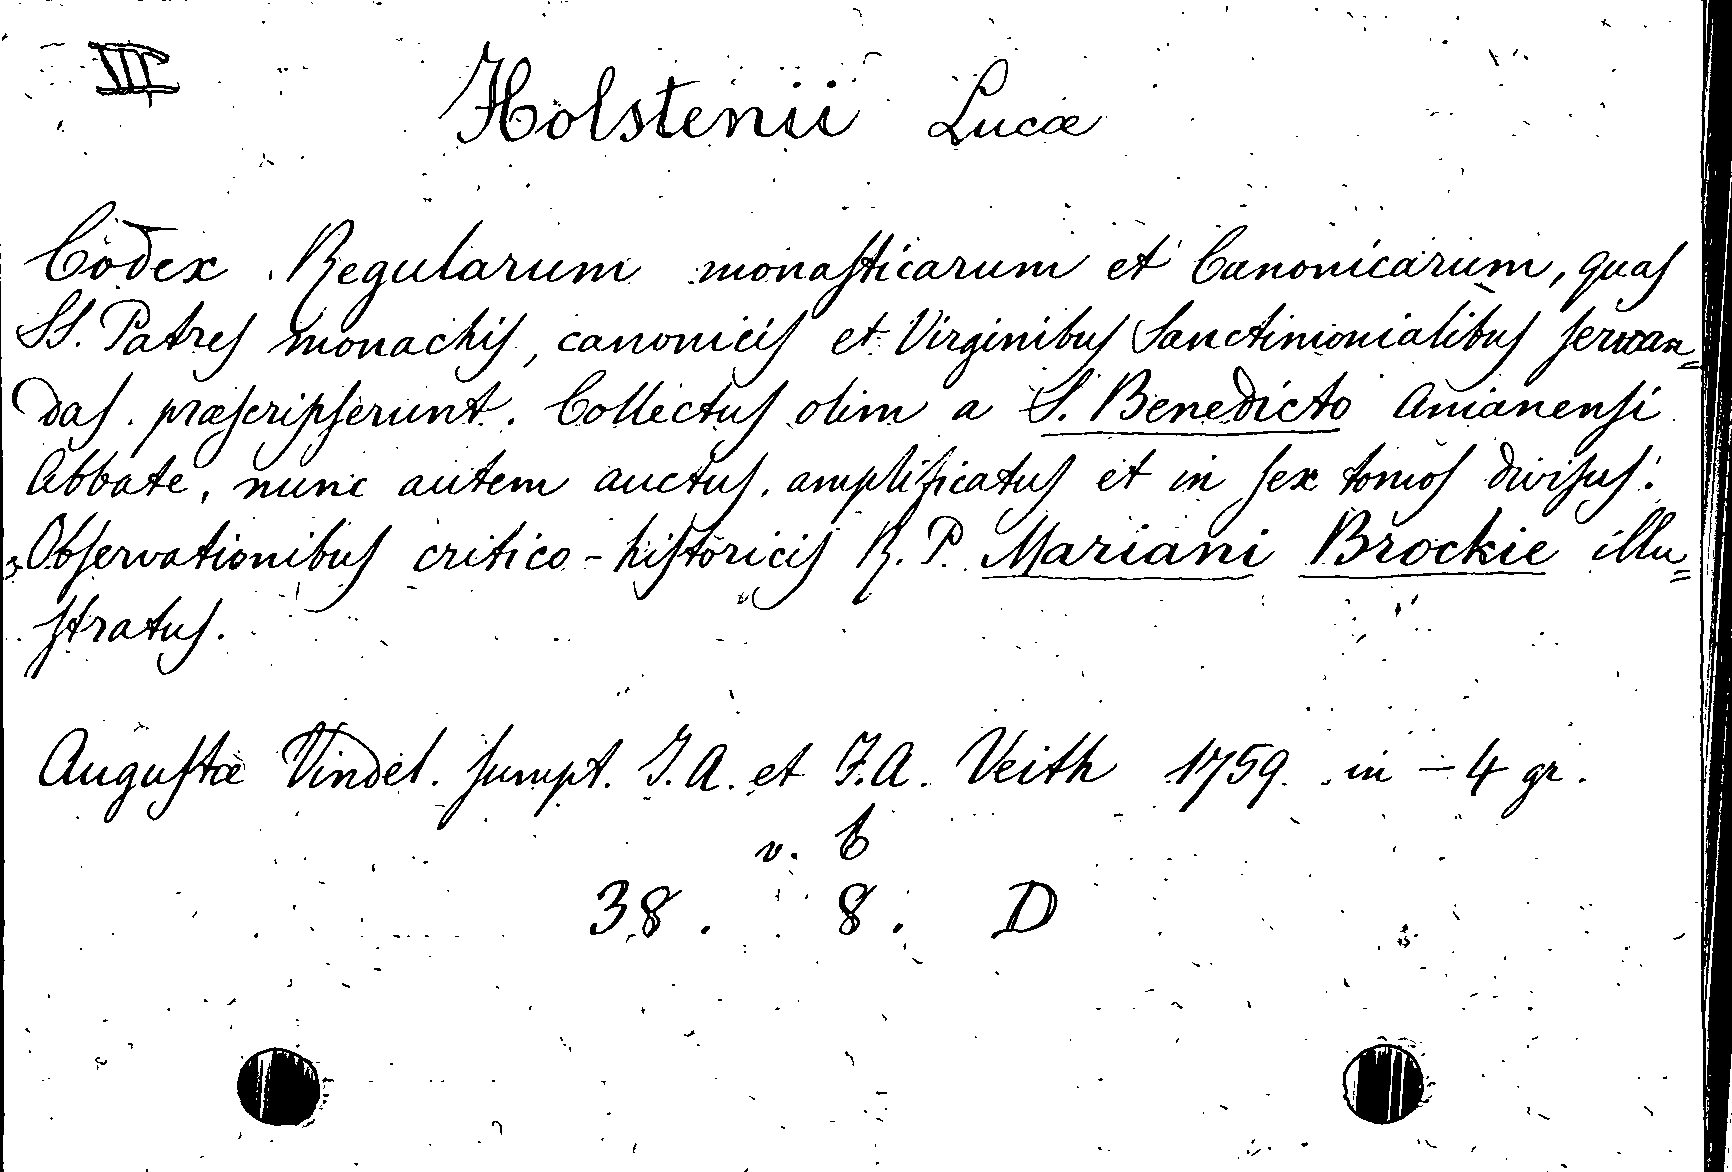 III
Holstenii Lucæ
Codex Regularum monasticarum et Canonicarum, quas
SS. Patres monachis, canonicis et Virginibus Sanctimonialibus servan=
das præscripserunt. Collectus olim a S. Benedicto Anianensi
Abbate, nunc autem auctus, amplificatus et in sex tomos divisus.
Observationibus critico-historicis R. P. Mariani Brockie illu=
stratus.
Augustæ Vindel. sumpt. I.A. et F.A. Veith 1759. in-4 gr.
v. 6
38. 8. D